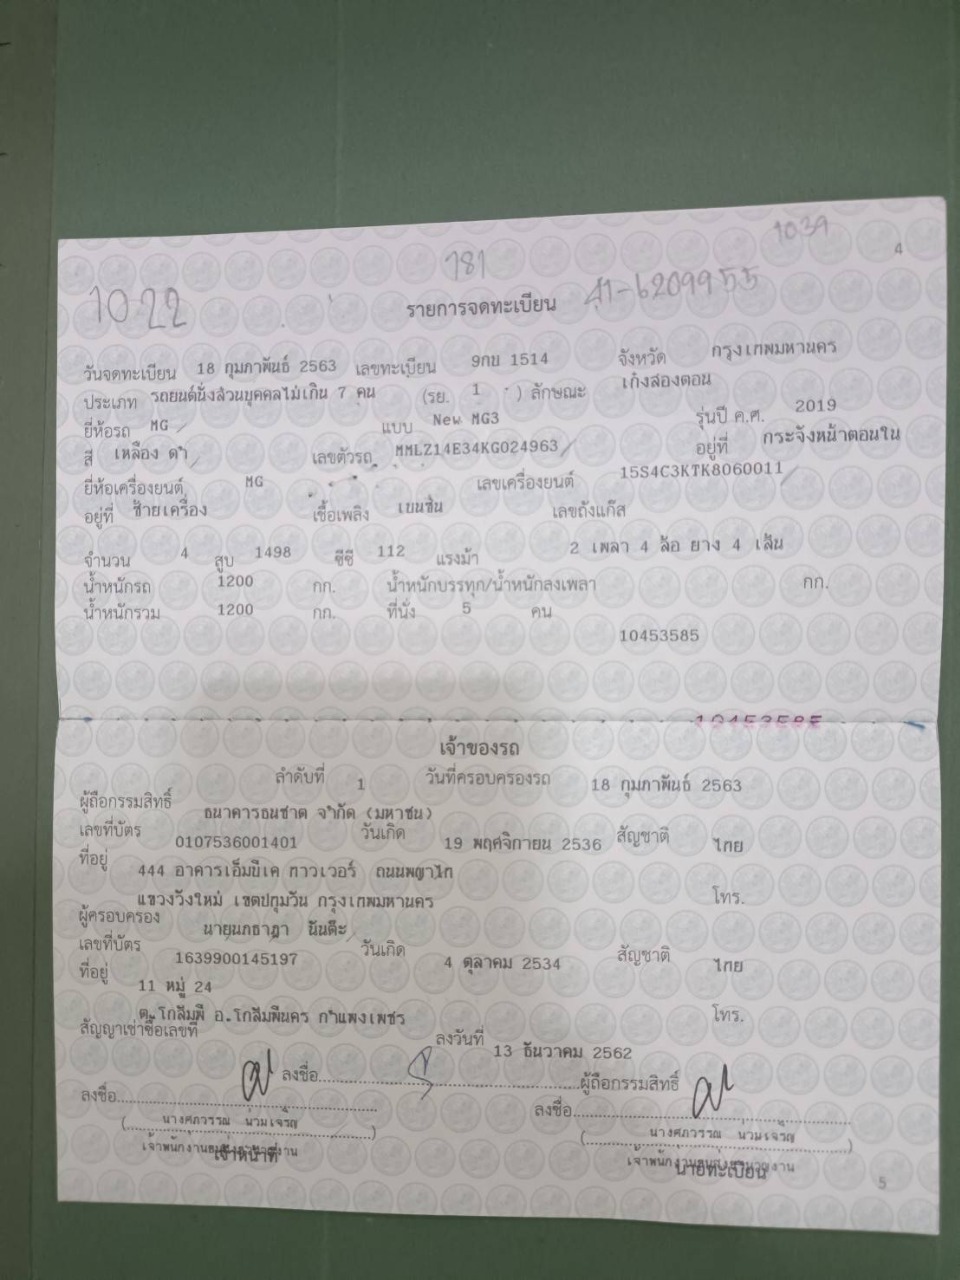 1039
4
781
1022
รายการจดทะเบียน 41-6209955
วันจดทะเบียน 18 กุมภาพันธ์ 2563 เลขทะเบียน 9กบ 1514 จังหวัด กรุงเทพมหานคร
ประเภท รถยนต์นั่งส่วนบุคคลไม่เกิน 7 คน (รย. 1 ) ลักษณะ เก๋งสองตอน
ยี่ห้อรถ MG แบบ New MG3 รุ่นปี ค.ศ. 2019
สี เหลือง ดำ เลขตัวรถ MMLZ14E34KG024963 อยู่ที่ กระจังหน้าตอนใน
ยี่ห้อเครื่องยนต์ MG เลขเครื่องยนต์ 15S4C3KTK8060011
อยู่ที่ ซ้ายเครื่อง เชื้อเพลิง เบนซิน เลขถังแก๊ส
จำนวน 4 สูบ 1498 ซีซี 112 แรงม้า 2 เพลา 4 ล้อ ยาง 4 เส้น
น้ำหนักรถ 1200 กก. น้ำหนักบรรทุก/น้ำหนักลงเพลา กก.
น้ำหนักรวม 1200 กก. ที่นั่ง 5 คน
10453585
10453585
เจ้าของรถ
ลำดับที่ 1 วันที่ครอบครองรถ 18 กุมภาพันธ์ 2563
ผู้ถือกรรมสิทธิ์ ธนาคารธนชาต จำกัด (มหาชน)
เลขที่บัตร 0107536001401 วันเกิด 19 พฤศจิกายน 2536 สัญชาติ ไทย
ที่อยู่ 444 อาคารเอ็มบีเค ทาวเวอร์ ถนนพญาไท
แขวงวังใหม่ เขตปทุมวัน กรุงเทพมหานคร โทร.
ผู้ครอบครอง นายนภธาฎา นันต๊ะ
เลขที่บัตร 1639900145197 วันเกิด 4 ตุลาคม 2534 สัญชาติ ไทย
ที่อยู่ 11 หมู่ 24
ต.โกสัมพี อ.โกสัมพีนคร กำแพงเพชร โทร.
สัญญาเช่าซื้อเลขที่ ลงวันที่ 13 ธันวาคม 2562
ลงชื่อ ผู้ถือกรรมสิทธิ์
ลงชื่อ ลงชื่อ
( นางศภวรรณ น่วมเจริญ ) ( นางศภวรรณ น่วมเจริญ )
เจ้าหน้าที่ นายทะเบียน
5